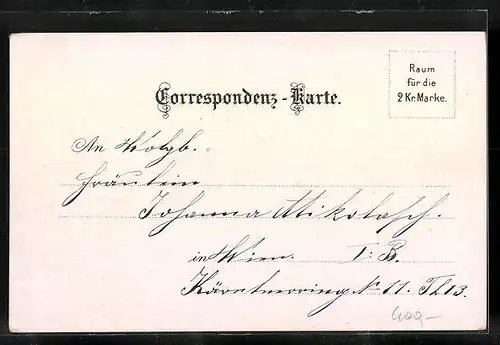 Raum
für die
2 Kr. Marke.
Correspondenz-Karte.
An Wolgb.
Fräulein
Johanna Mikolasch.
in Wien. I. B.
Kärntnerring No 11. Th 3.